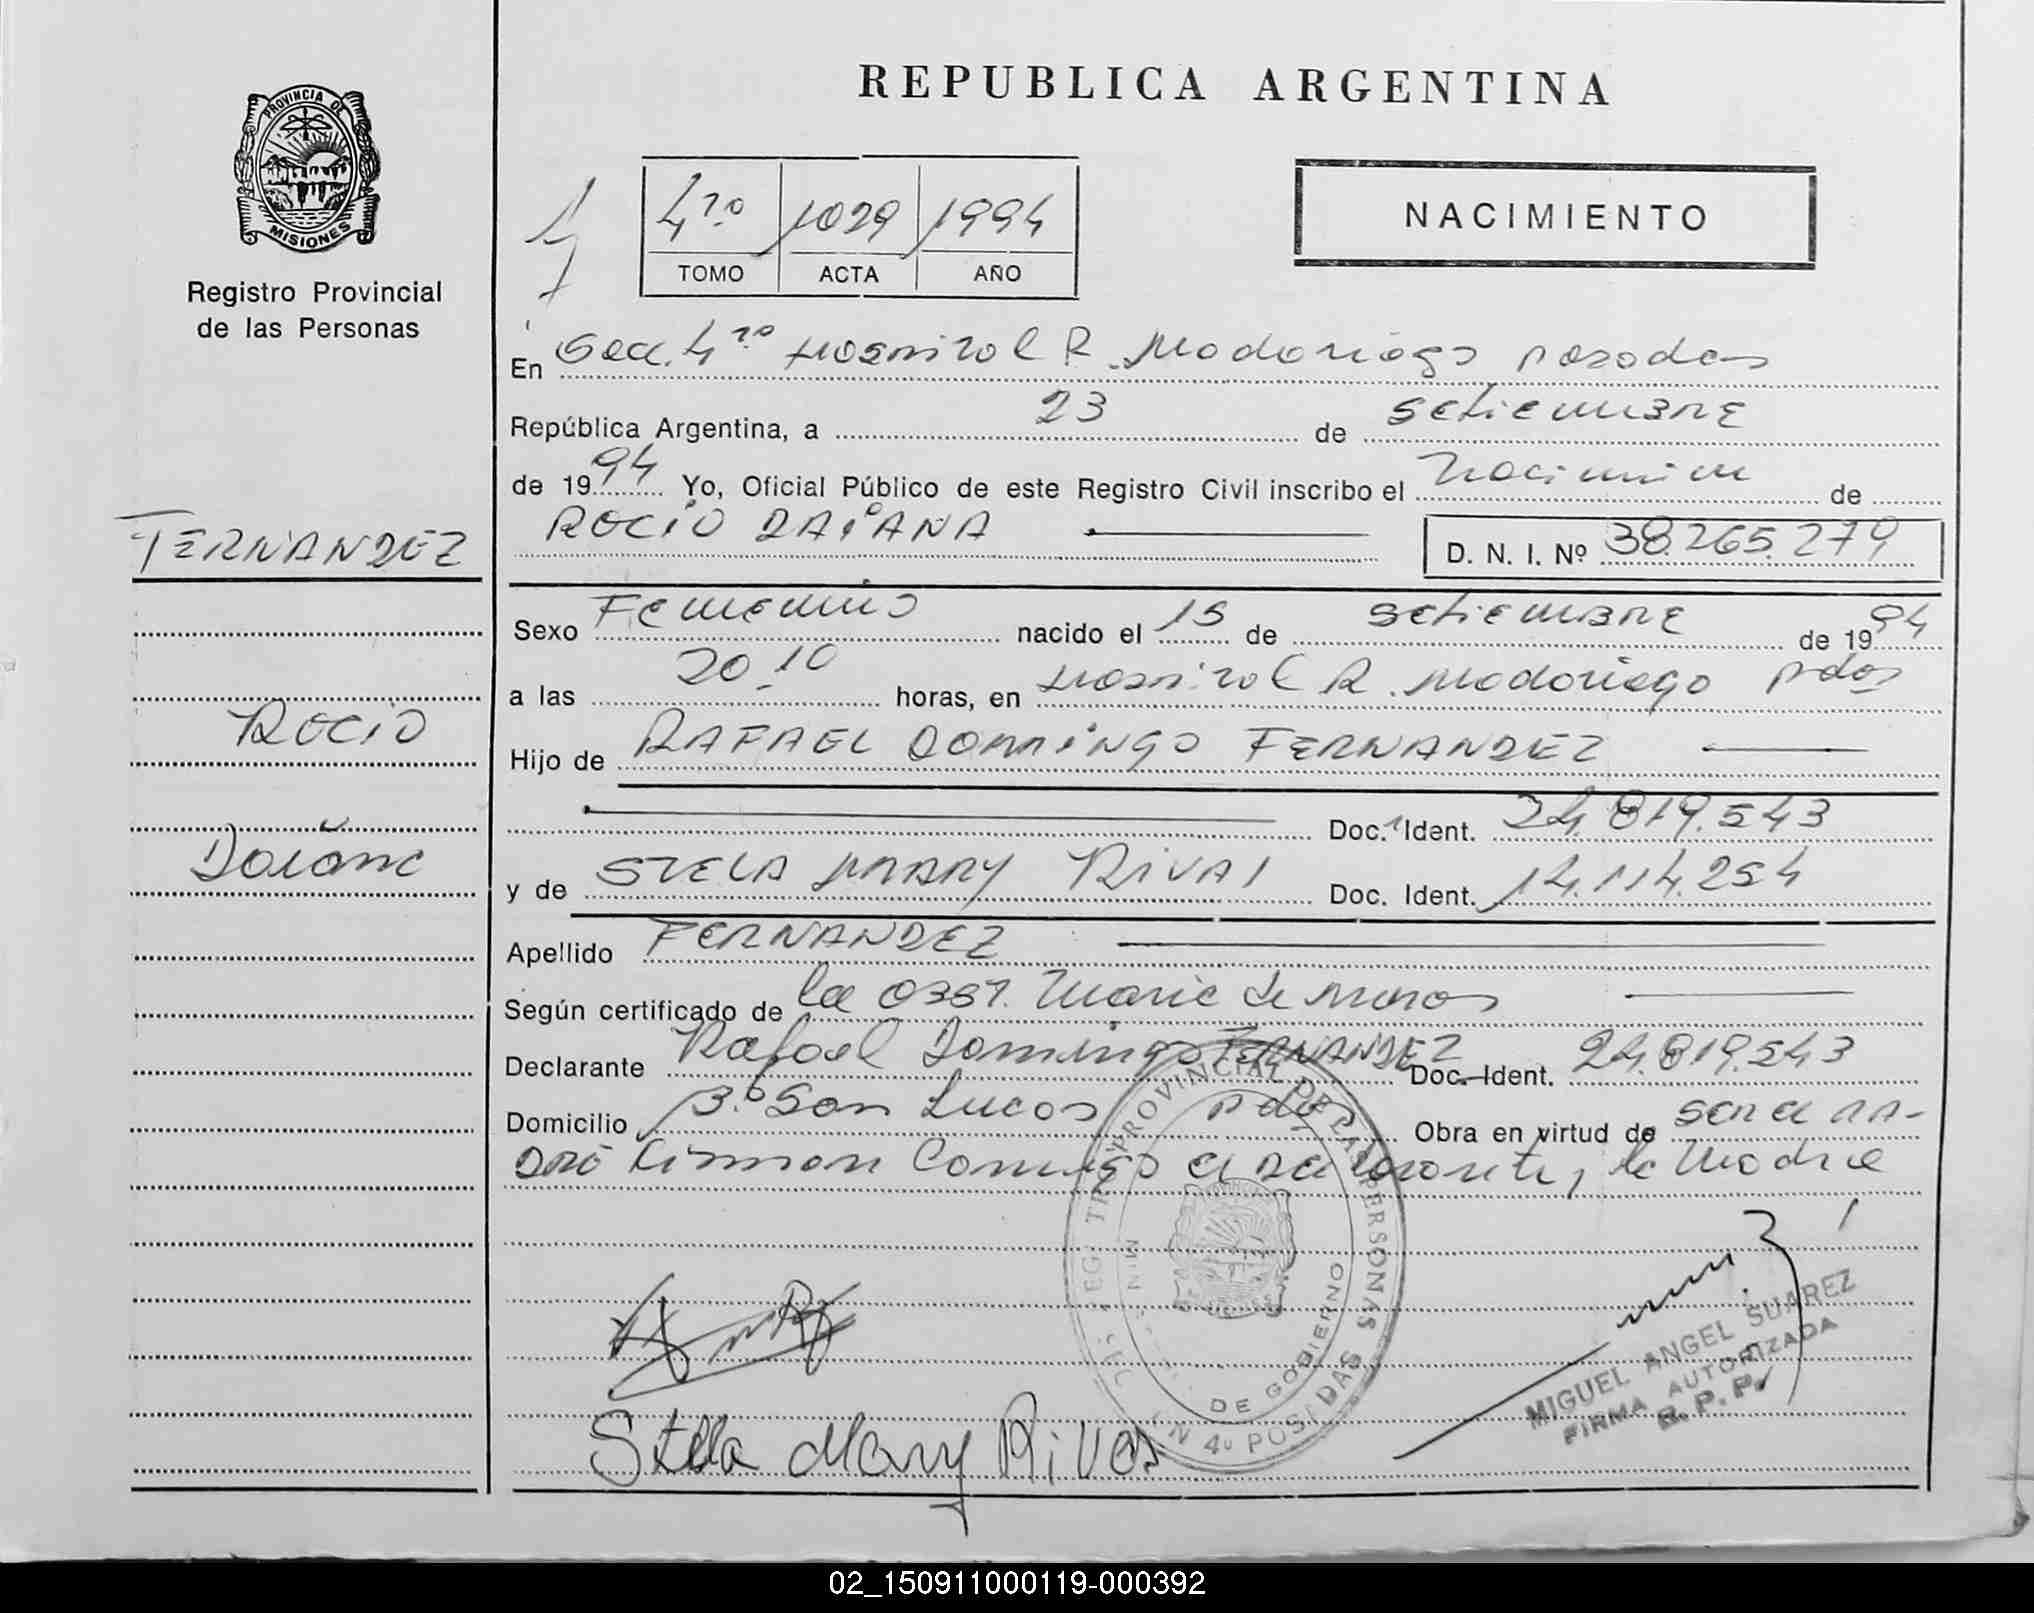 PROVINCIA DE
MISIONES
Registro Provincial
de las Personas
REPUBLICA ARGENTINA
4ro 1029 1994
TOMO ACTA AÑO
NACIMIENTO
En Sec. 4ro Hospital R. Madariaga Posadas
República Argentina, a 23 de setiembre
de 1994 Yo, Oficial Público de este Registro Civil inscribo el de
ROCIO DAIANA
D. N. I. Nº 38.265.279
FERNANDEZ
Sexo Femenino nacido el 15 de setiembre de 1994
a las 20.10 horas, en Hospital R. Madariaga Pdas
ROCIO
Hijo de RAFAEL DOMINGO FERNANDEZ
Doc. Ident. 24.819.543
Daiana
y de STELA MARY RIVAS Doc. Ident. 14.114.254
Apellido FERNANDEZ
Según certificado de la Obst. Maria de
Declarante Rafael Domingo FERNANDEZ Doc. Ident. 24.819.543
Domicilio Bº San Lucas Pdas Obra en virtud de ser el pa-
dre Firman Conmigo el declarante, la Madre
REGISTRO PROVINCIAL DE LAS PERSONAS
DE GOBIERNO
4º POSADAS
MIGUEL ANGEL SUAREZ
FIRMA AUTORIZADA
R.P.P.
Stella Mary Rivas
02_150911000119-000392